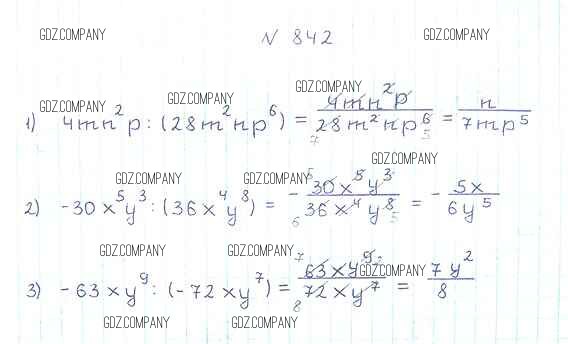 GDZ.COMPANY № 842 GDZ.COMPANY
GDZ.COMPANY GDZ.COMPANY GDZ.COMPANY
1) 4mn²p : (28m²np⁶) = 4mn²p / 28m²np⁶ 7 5 = n / 7mp⁵
GDZ.COMPANY GDZ.COMPANY GDZ.COMPANY
2) -30x⁵y³ : (36x⁴y⁸) = - 5 30x⁵y³ / 6 36x⁴y⁸ 5 = - 5x / 6y⁵
GDZ.COMPANY GDZ.COMPANY
3) -63xy⁹ : (-72xy⁷) = 7 63xy⁹ ² / 8 72xy⁷ = 7y² / 8
GDZ.COMPANY
GDZ.COMPANY GDZ.COMPANY